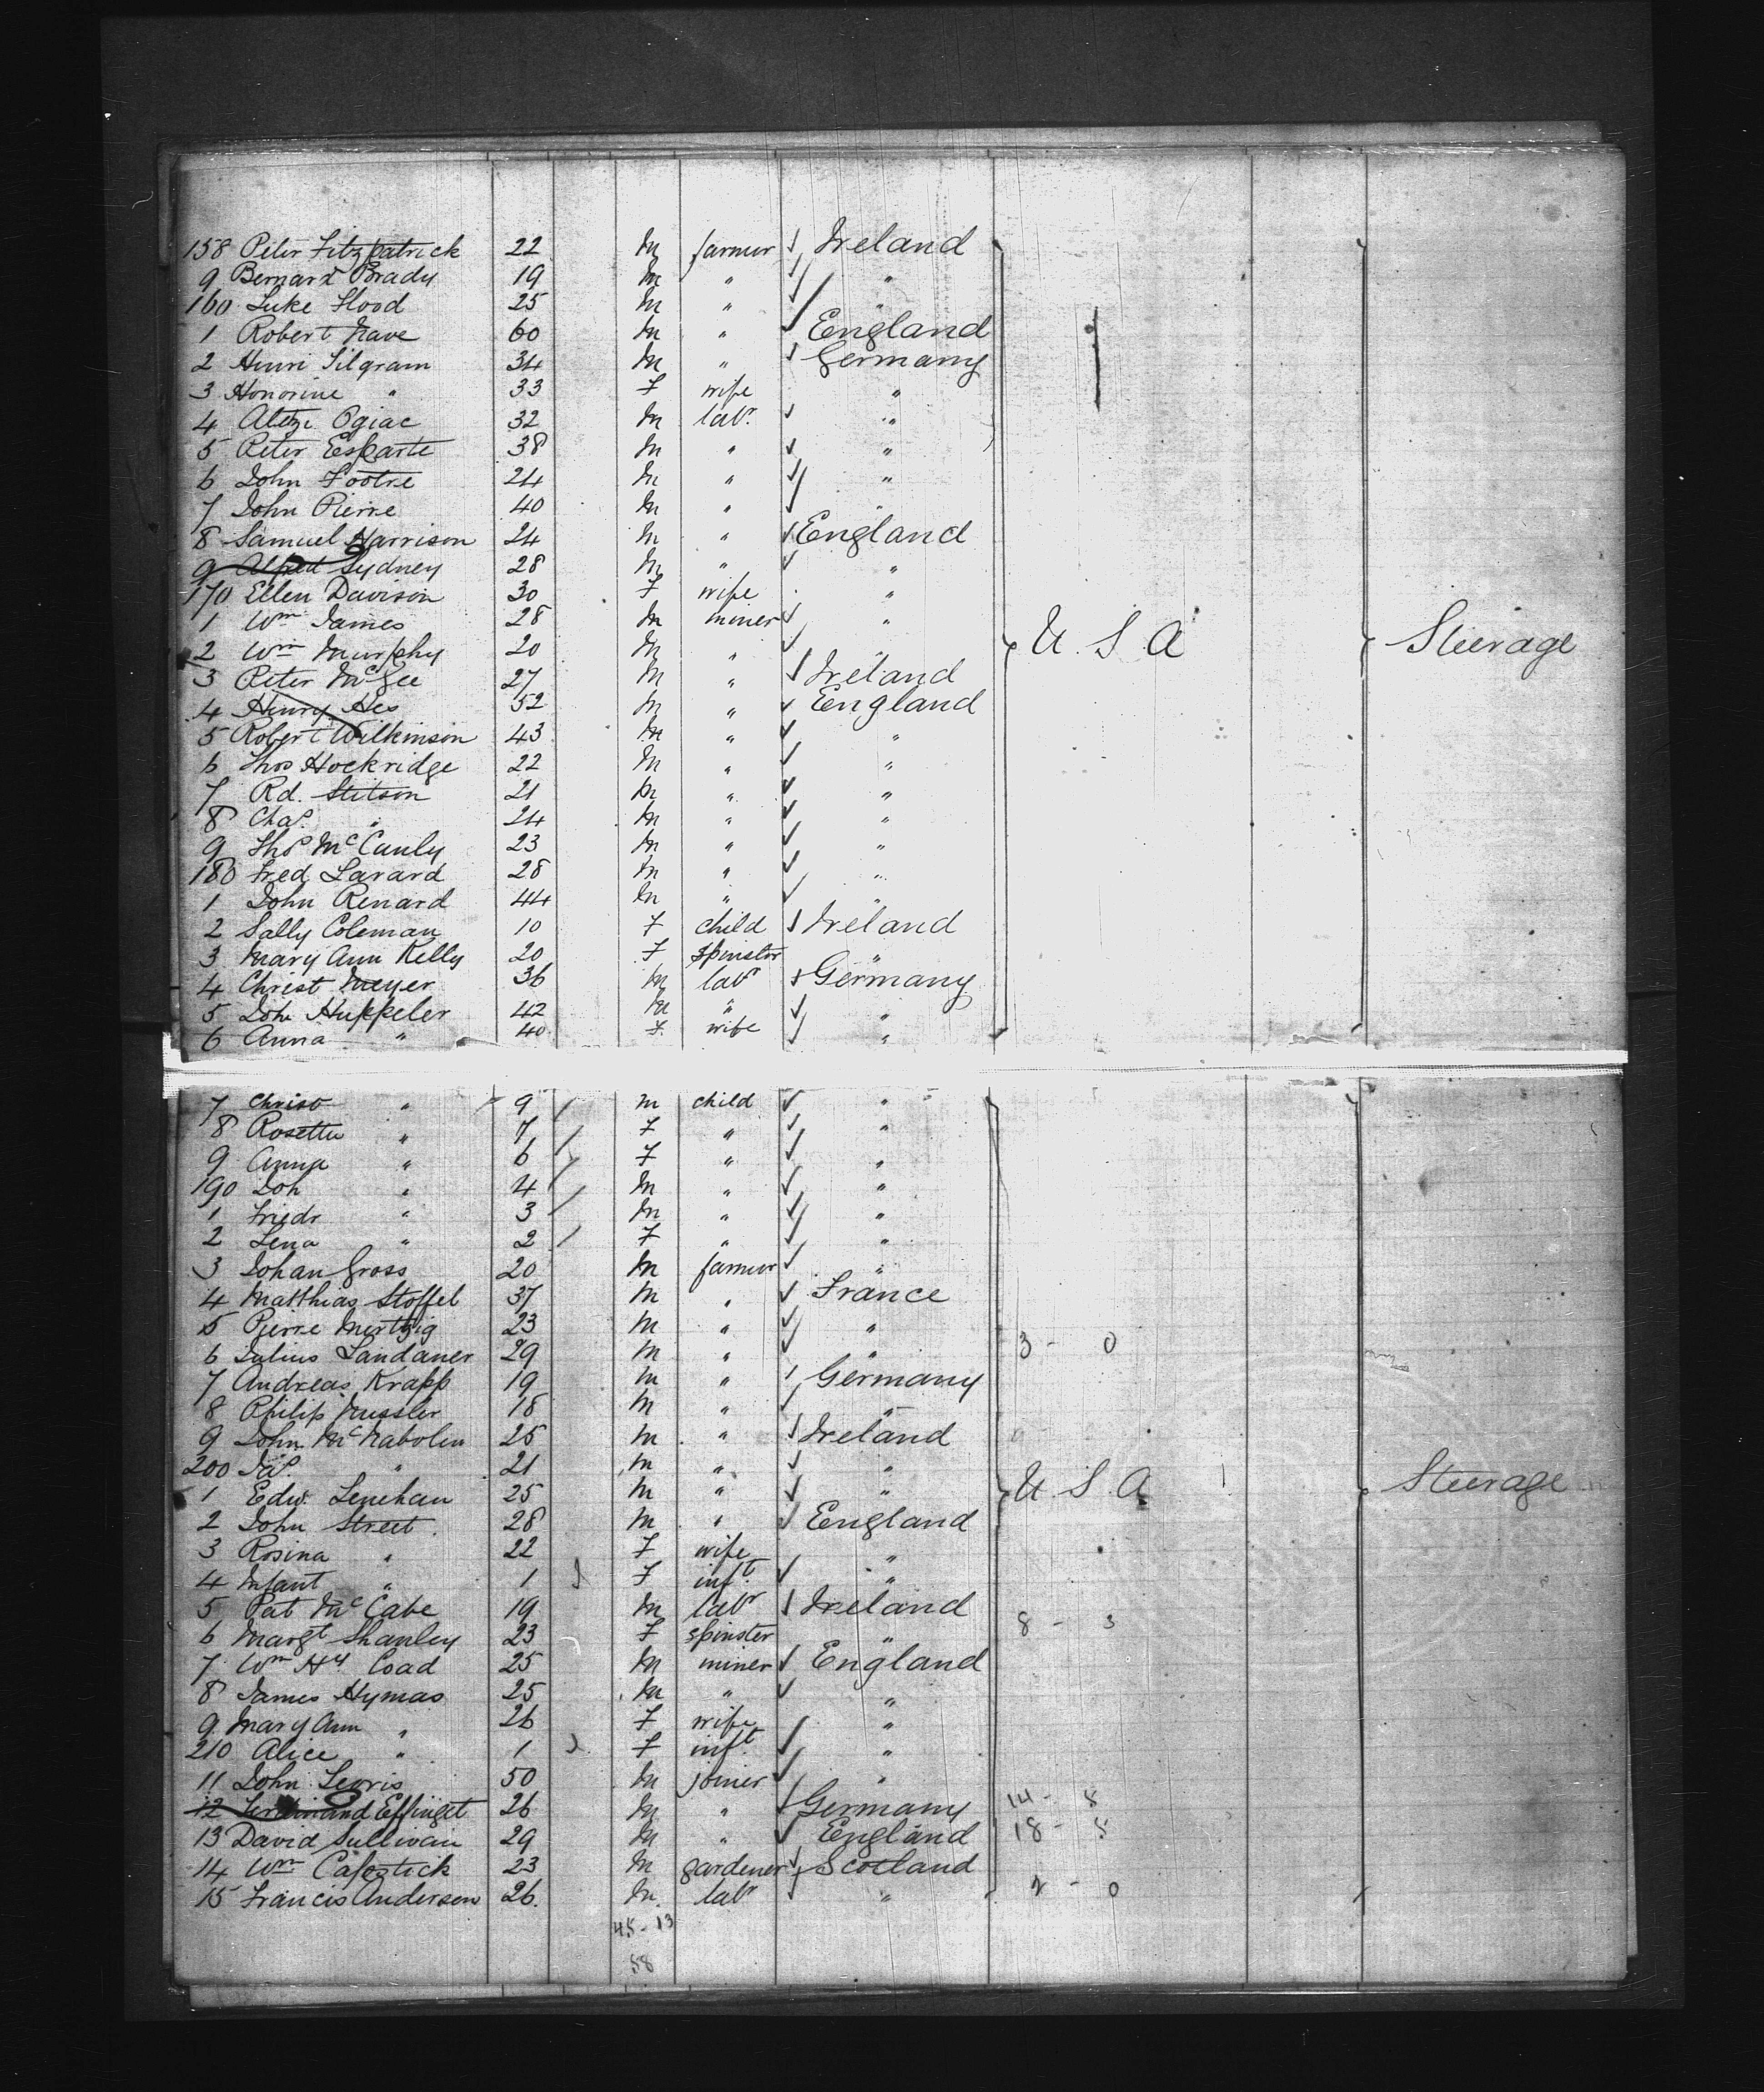 158 Peter Fitzpatrick 22 M farmer Ireland
9 Bernard Brady 19 M " "
160 Luke Flood 25 M " "
1 Robert Nave 60 M " England
2 Henri Silgram 34 M " Germany
3 Honorine " 33 F wife "
4 Ogiac 32 M labr. "
5 Peter Esparte 38 M " "
6 John Footre 24 M " "
7 John Pierre 40 M " "
8 Samuel Harrison 24 M " England
9 Alfred Sydney 28 M " "
170 Ellen Davison 30 F wife "
1 Wm James 28 M miner "
2 Wm Murphy 20 M " "
U S A Steerage
3 Peter McGee 27 M " Ireland
4 Henry Hes 52 M " England
5 Robert Wilkinson 43 M " "
6 Thos Hockridge 22 M " "
7 Rd. Stitson 21 M " "
8 Chas. " 24 M " "
9 Thos McCauly 23 M " "
180 Fred Lavard 28 M " "
1 John Renard 44 M " "
2 Sally Coleman 10 F child Ireland
3 Mary Ann Kelly 20 F spinster "
4 Christ Meyer 36 M labr Germany
5 Joh Huppeler 42 M " "
6 Anna " 40 F wife "
7 Christo " 9 M child "
8 Rosetta " 7 F " "
9 Anna " 6 F " "
190 Joh " 4 M " "
1 Friedr " 3 M " "
2 Lena " 2 F " "
3 Johan Gross 20 M farmer "
4 Matthias Stoffel 37 M " France
5 Pierre Mertzig 23 M " "
6 Julius Landauer 29 M " " 3 - 0
7 Andreas Krapp 19 M " Germany
8 Philip Mussler 18 M " "
9 John McNabolin 25 M " Ireland
200 Jas. " 21 M " "
1 Edw. Lenehan 25 M " " U S A Steerage
2 John Street 28 M " England
3 Rosina " 22 F wife "
4 Infant " 1 F inft. "
5 Pat McCabe 19 M labr Ireland
6 Margt Shanley 23 F spinster " 8 - 3
7 Wm Hy Coad 25 M miner England
8 James Hymas 25 M " "
9 Mary Ann " 26 F wife "
210 Alice " 1 F inft "
11 John Lewis 50 M joiner "
12 Ferdinand Effinget 26 M " Germany 14 - 8
13 David Sullivan 29 M " England 18 - 5
14 Wm Capstick 23 M gardener Scotland
15 Francis Anderson 26 M labr " 2 - 0
45 - 13
58